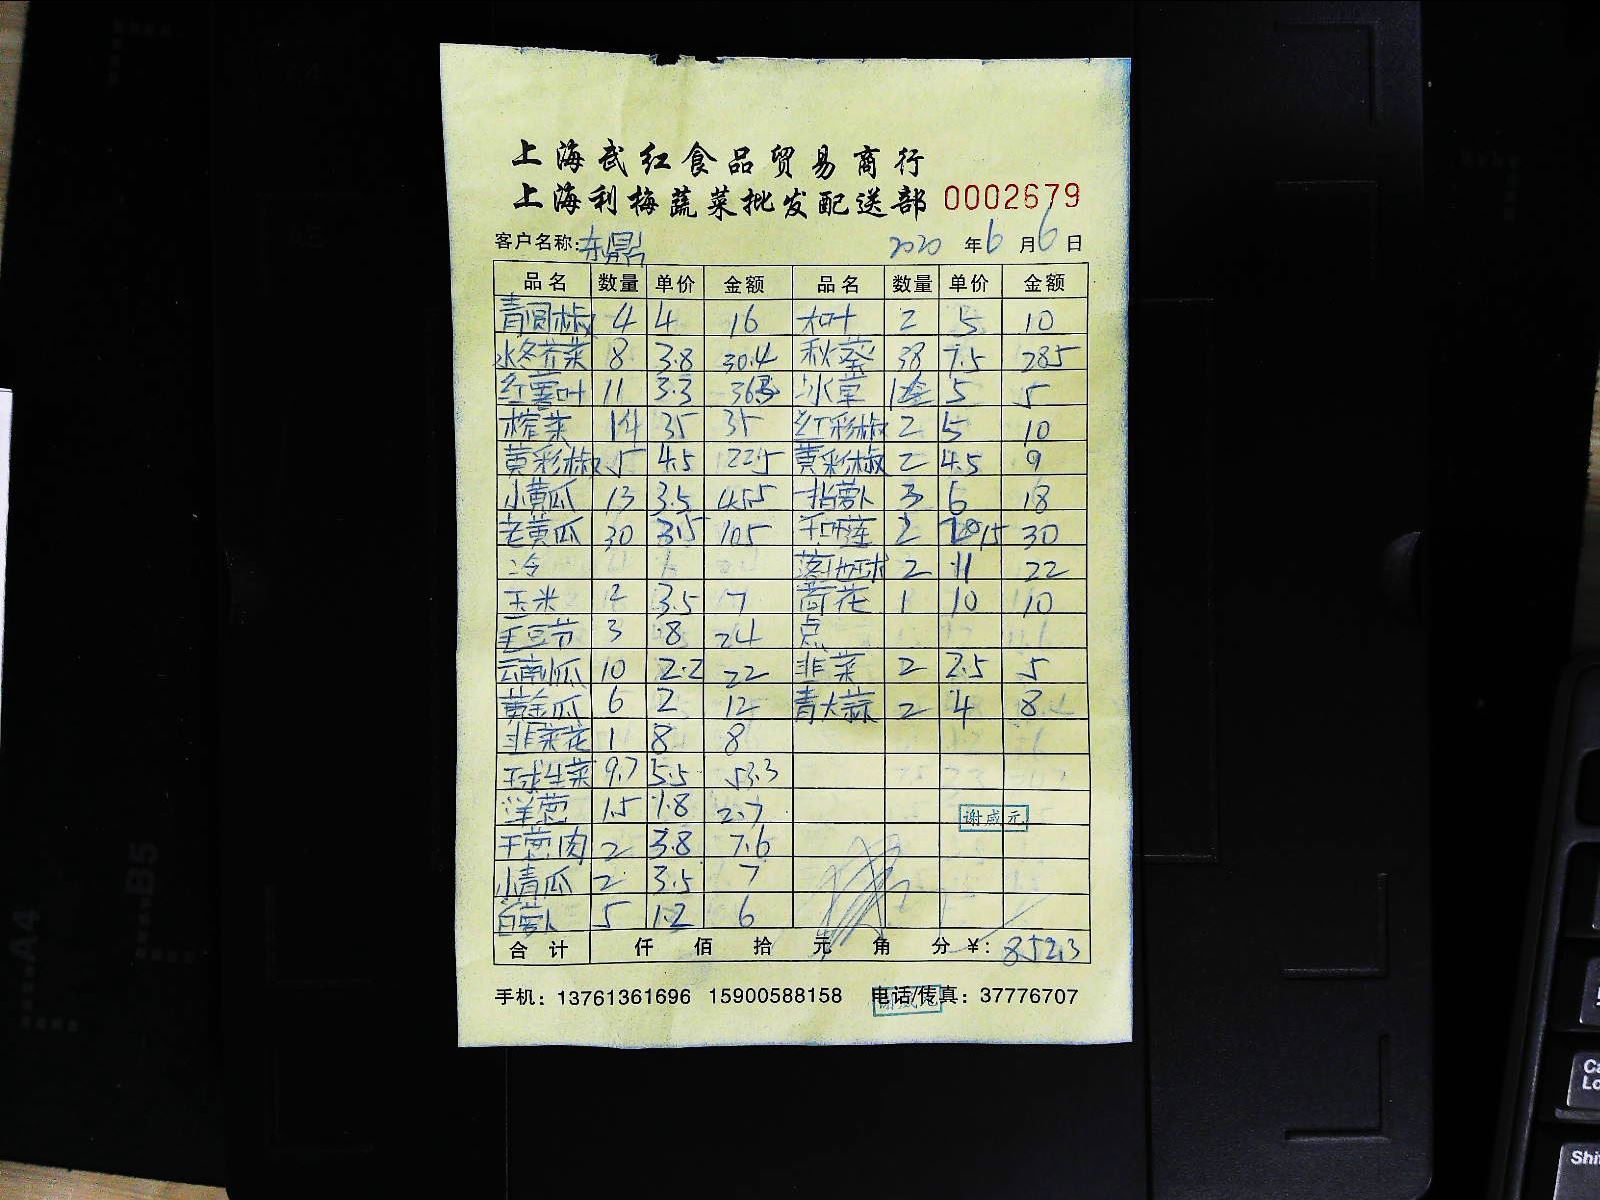 上海武红食品贸易商行
上海利梅蔬菜批发配送部 0002679
客户名称:东鼎 2020 年 6 月 6 日
品名 数量 单价 金额 品名 数量 单价 金额
青圆椒 4 4 16 大叶 2 5 10
水冬芥菜 8 3.8 30.4 秋葵 38 7.5 285
红薯叶 11 3.3 36.3 冰草 1盒 5 5
榨菜 14 35 35 红彩椒 2 5 10
黄彩椒 5 4.5 22.5 黄彩椒 2 4.5 9
小黄瓜 13 3.5 45.5 一指萝卜 3 6 18
老黄瓜 30 3.5 105 千叶莲 2 15 30
冷 落地球 2 11 22
玉米 2 3.5 7 荷花 1 10 10
毛豆节 3 8 24 点
云南小瓜 10 2.2 22 韭菜 2 2.5 5
黄金瓜 6 2 12 青大蒜 2 4 8
韭菜花 1 8 8
球生菜 9.7 5.5 53.3
洋葱 1.5 1.8 2.7
谢咸元
干葱肉 2 3.8 7.6
小青瓜 2 3.5 7
白萝卜 5 1.2 6
合计 仟 佰 拾 元 角 分 ¥: 852.3
手机: 13761361696 15900588158 电话/传真: 37776707
A4
B5